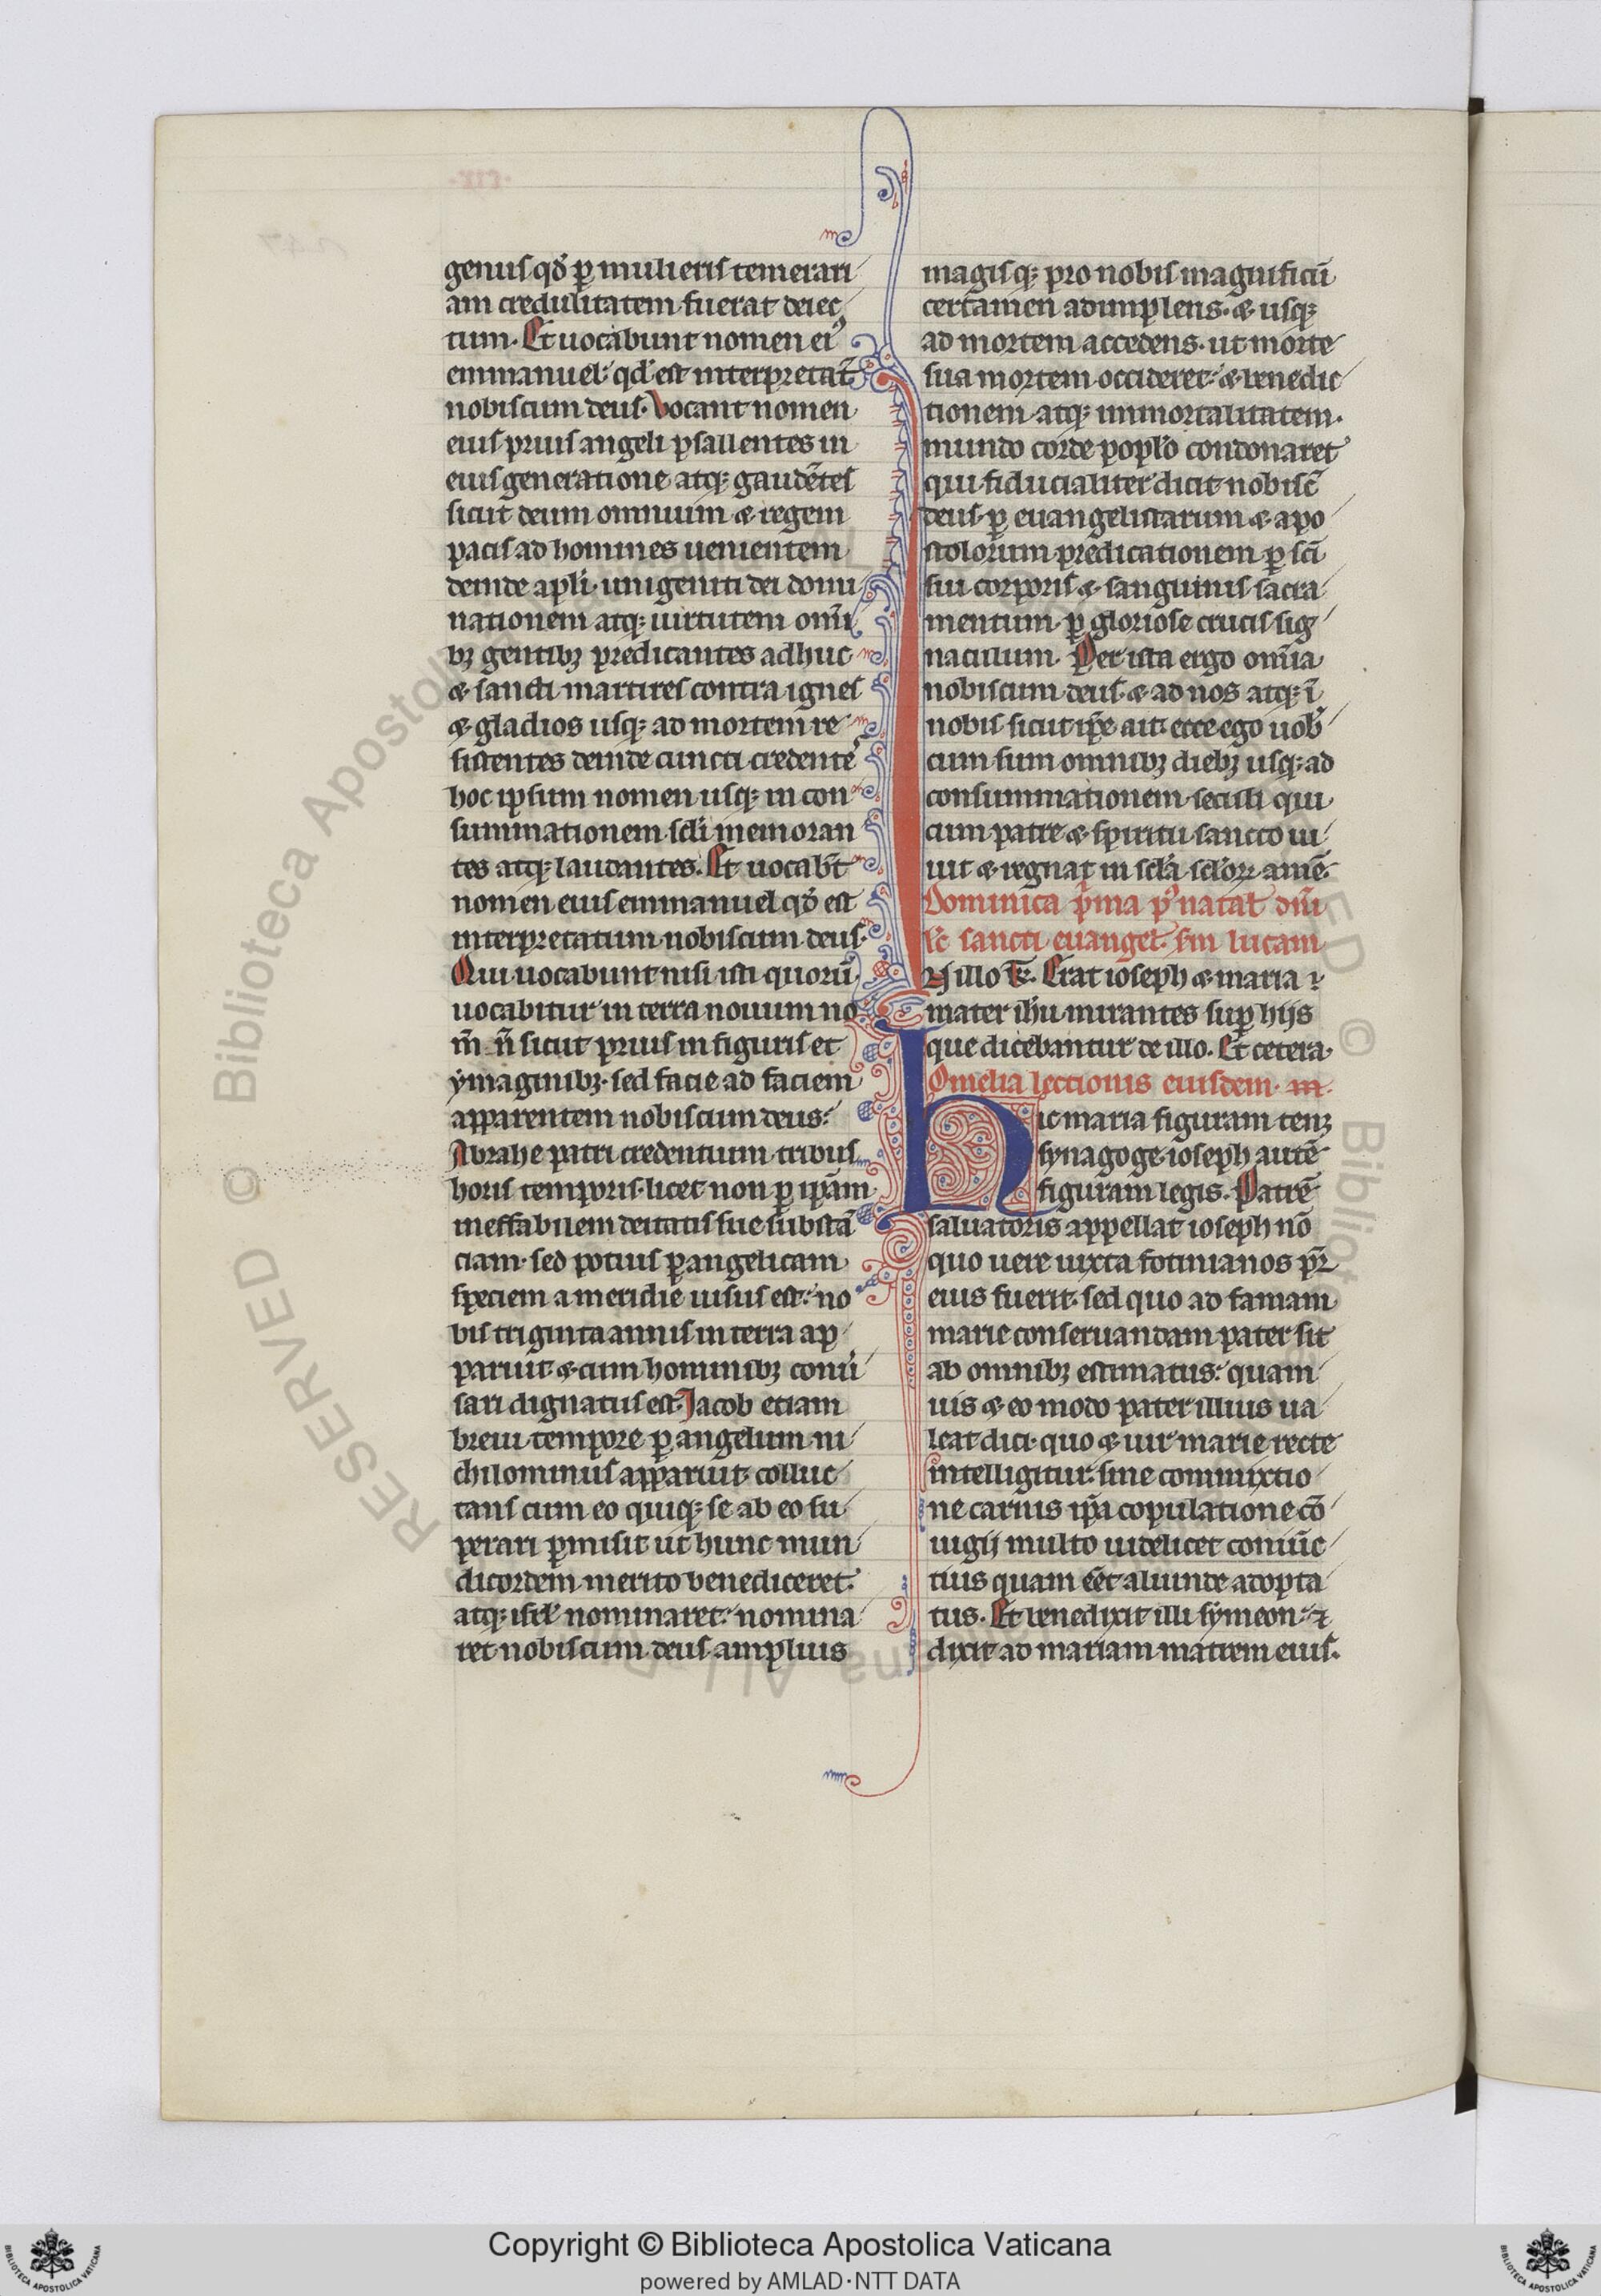 genus qđ ꝑ mulieris temerari
am credulitatem fuerat deiec
tum. Et uocabunt nomen eiꝰ
emmanuel qđ est interpretat̃
nobiscum deus. Vocant nomen
eius prius angeli psallentes in
eius generatione atqꝫ gaudẽtes
sicut deum omnium ⁊ regem
pacis ad homines uenientem
deinde apl̃i unigeniti dei domi
nationem atqꝫ uirtutem om̃i
bꝫ gentibꝫ predicantes adhuc
⁊ sancti martires contra ignes
⁊ gladios usqꝫ ad mortem re
sistentes deinde cuncti credente
hoc ipsum nomen usqꝫ in con
summationem sc̃li memoran
tes atqꝫ laudantes. Et uocab̃t
nomen eius emmanuel qđ est
interpretatum nobiscum deus.
Qui uocabunt nisi isti quorũ
uocabitur in terra nouum no
m̃ ñ sicut prius in figuris et
ymaginibꝫ. sed facie ad faciem
apparentem nobiscum deus.
Abrahe patri credentium tribus
horis temporis. licet non ꝑ ip̃am
ineffabilem deitatis sue substã
ciam. sed potius ꝑ angelicam
speciem a meridie uisus est. no
bis triginta annis in terra ap
paruit ⁊ cum hominibꝫ conũ
sari dignatus est. Jacob etiam
breui tempore ꝑ angelum ni
chilominus apparuit colluc
tans cum eo quiqꝫ se ab eo su
perari ꝑmisit ut hunc mun
dicordem merito benediceret.
atqꝫ isrl̃ nominaret. nomina
ret nobiscum deus amplius
magisqꝫ pro nobis magnificũ
certamen adimplens. ⁊ usqꝫ
ad mortem accedens. ut morte
sua mortem occideret. ⁊ benedic
tionem atqꝫ immortalitatem.
mundo corde popl̃o condonaret
qui fiducialiter dicit nobisc̃
deus. ꝑ euangelistarum ⁊ apo
stolorum predicationem ꝑ sc̃i
sui corporis ⁊ sanguinis sacra
mentum. ꝑ gloriose crucis sig
naculum. Per ista ergo om̃ia
nobiscum deus. ⁊ ad nos atqꝫ ĩ
nobis sicut ip̃e ait. ecce ego uob̃
cum sum omnibꝫ diebꝫ usqꝫ ad
consummationem seculi qui
cum patre ⁊ spiritu sancto ui
uit ⁊ regnat in sc̃la sc̃loꝝ amẽ.
Dominica p̃ma pꝰ natał dñi
sc̃ sancti euangeł. sm̃ lucam
In illo t̃. Erat ioseph ⁊ maria
mater ih̃u mirantes suꝑ hijs
que dicebantur de illo. Et cetera.
Omelia lectionis eiusdem.
Hic maria figuram tenꝫ
synagoge ioseph autẽ
figuram legis. Patrẽ
saluatoris appellat ioseph nõ
quo uere iuxta fotinianos pr̃
eius fuerit. sed quo ad famam
marie conseruandam pater sit
ab omnibꝫ estimatus. quam
uis ⁊ eo modo pater illius ua
leat dici. quo ⁊ uir marie recte
intelligitur. sine commixtio
ne carnis ip̃a copulatione cõ
iugij multo uidelicet coniũc
tius quam eẽt aliunde adopta
tus. Et benedixit illi symeon. ⁊
dixit ad mariam matrem eius.
RESERVED © Biblioteca Apostolica Vaticana
Copyright © Biblioteca Apostolica Vaticana
powered by AMLAD·NTT DATA